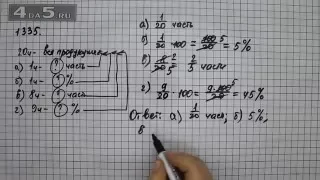 4DA5.RU
1335.
20ч - вся продукция
а) 1ч - ? часть
б) 1ч - ? %
в) 8ч - ? часть
г) 9ч - ? %
а) 1/20 часть
б) 1/20 · 100 = 100/20 = 5%
в) 8/20 = 2/5 часть
г) 9/20 · 100 = 9·100/20 = 45%
Ответ: а) 1/20 часть; б) 5%;
в